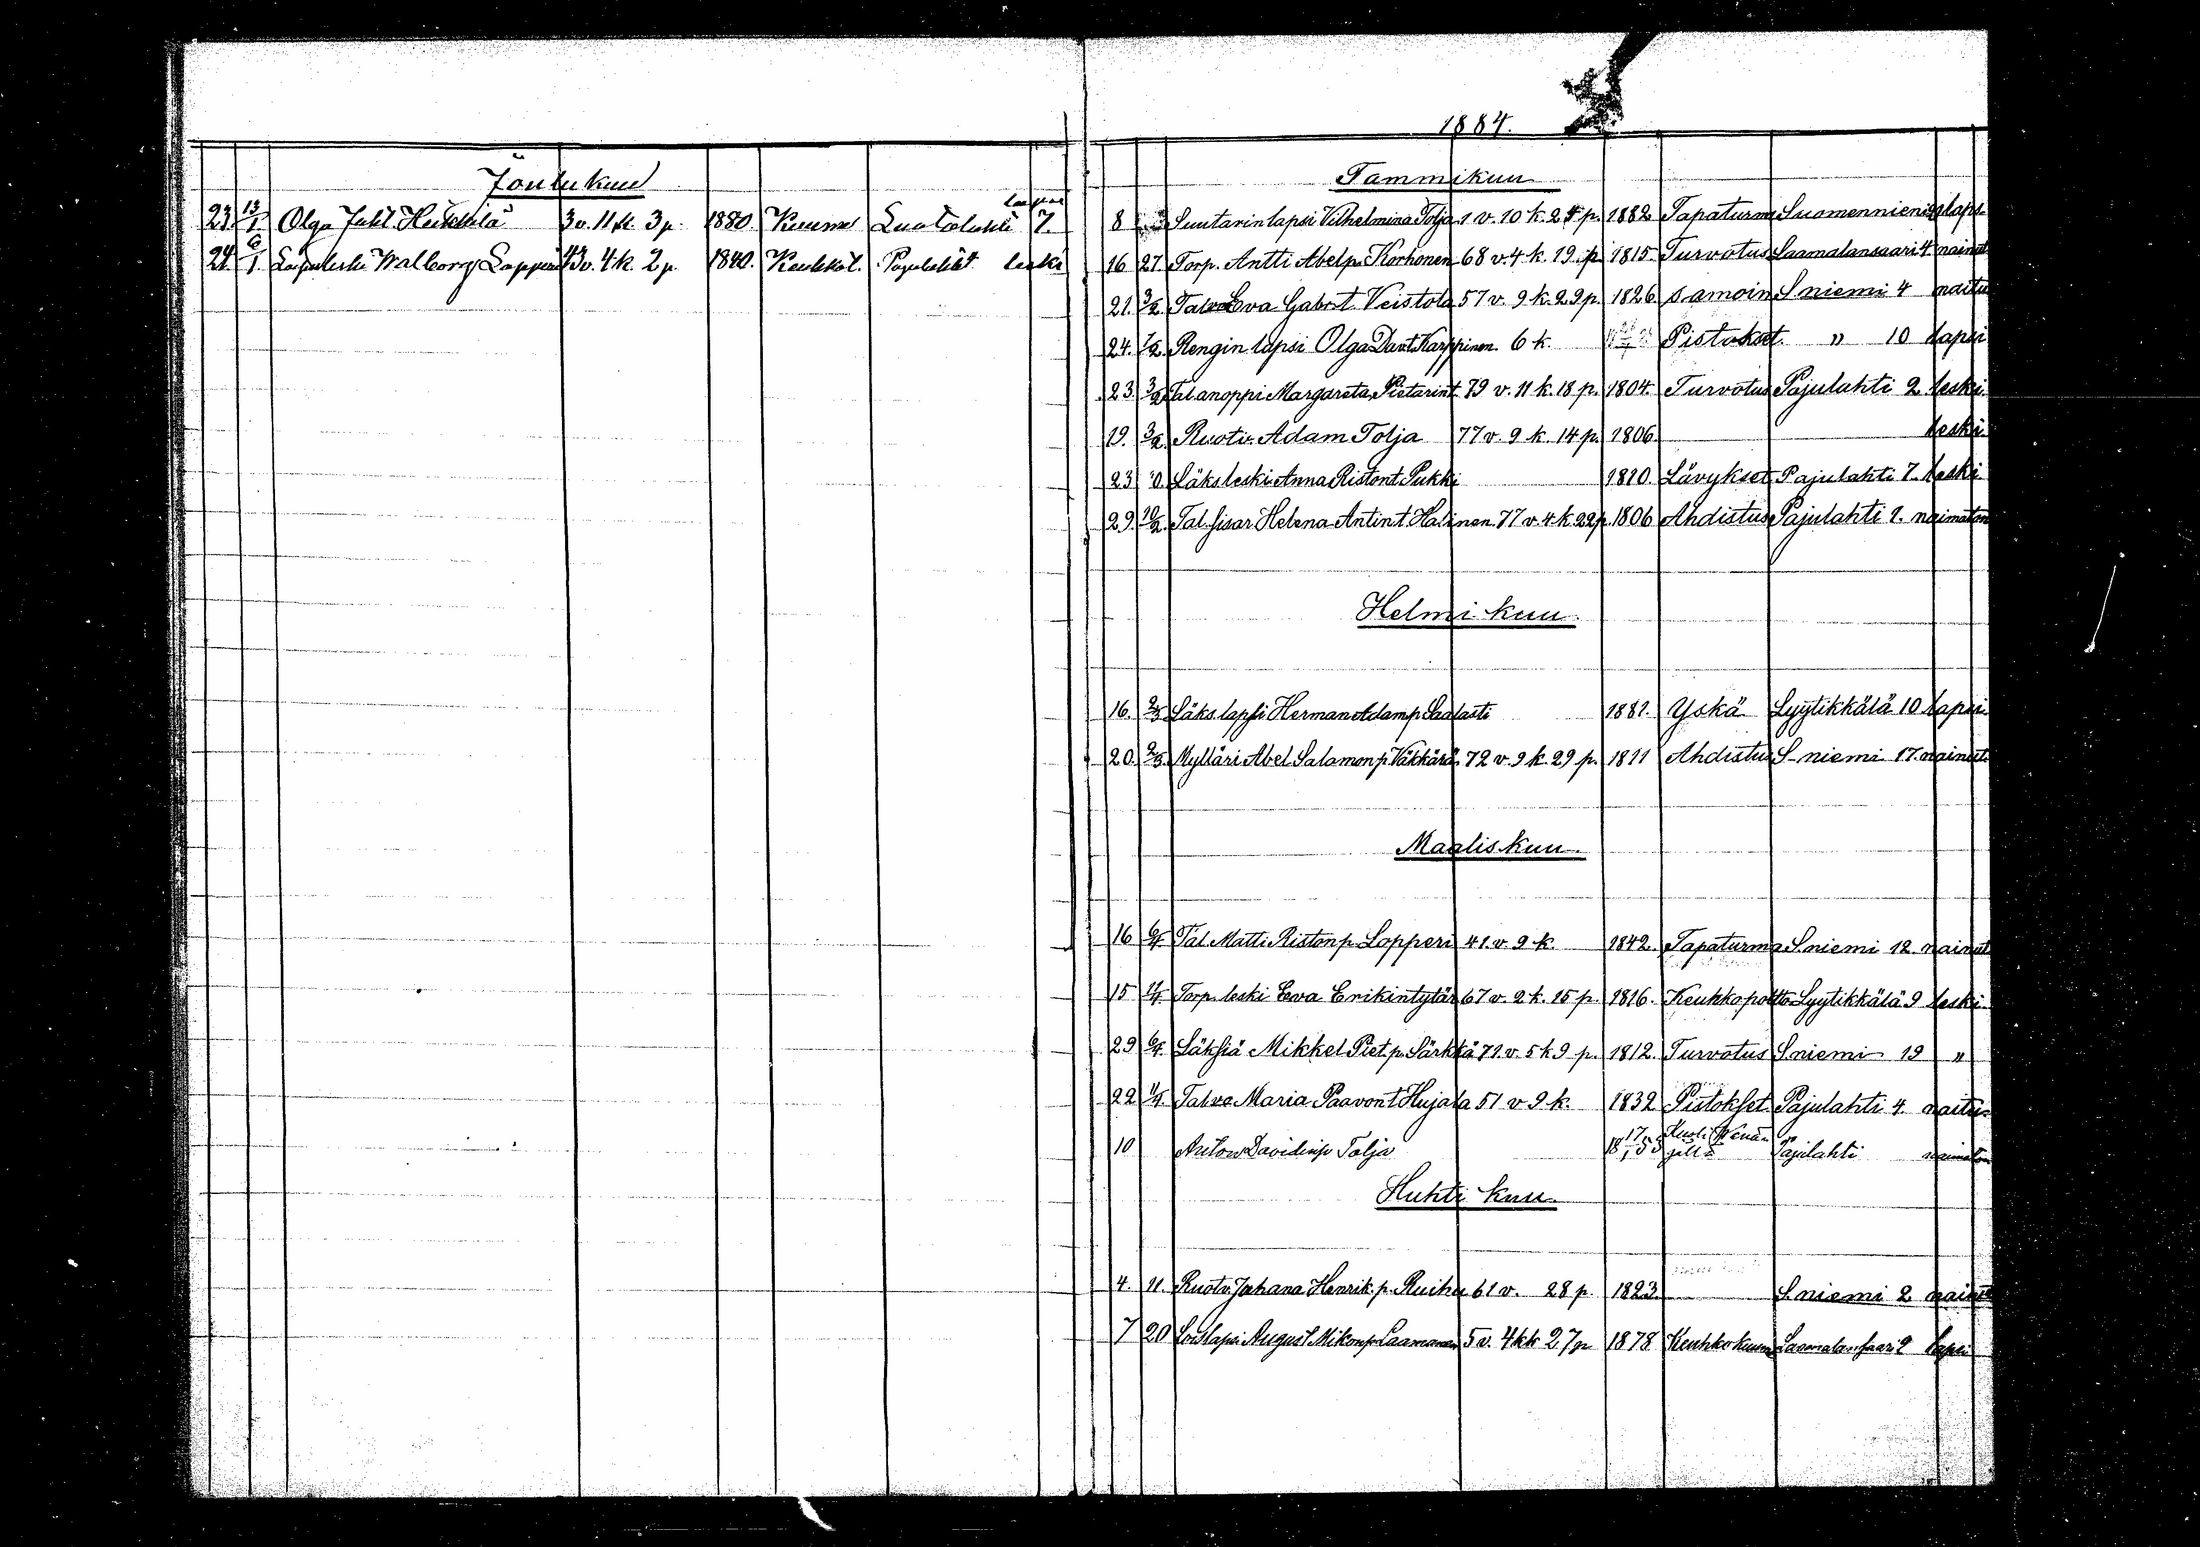 Joulukuu
lapsi
23. 13/1. Olga Juht. Heikkilä 3 v. 11 k. 3 p. 1880. Kuume 7.
24. 6/1. Walborg Lapperi 43 v. 4 k. 2 p. 1840. Keuhkot. Pajulahti leski
1884.
Tammikuu
8 Suutarin lapsi Vilhelmina Tolja 1 v. 10 k. 28 p. 1882 Tapaturma Suomenniemi lapsi
16 27. Torp. Antti Abelp. Korhonen 68 v. 4 k. 19. p. 1815. Turvotus Laamalansaari 4 nainut
21. 3/2. Talvo Eva Gabr.t. Veistola 57 v. 9 k. 29 p. 1826. samoin S.niemi 4 naitu
24. 7/2. Rengin lapsi Olga Davt. Karppinen 6 k. Pistokset. " 10 lapsi
23. 3/2 Tal. anoppi Margareta Pietarint. 79 v. 11 k. 18 p. 1804. Turvotus Pajulahti 2 leski.
19. 3/2. Ruotiv. Adam Tolja 77 v. 9 k. 14 p. 1806. leski.
23 Läks leski Anna Ristont. Pukki 1810. Lävykset Pajulahti 7. leski.
29. 10/2. Tal. sisar Helena Antint. Halinen 77 v. 4 k. 22 p. 1806 Ahdistus Pajulahti 1. naimaton
Helmi kuu.
16. 2/3. Läks. lapsi Herman Adamp. Saalasti 1881. Yskä Lyytikkälä 10 lapsi
20. 2/3. Mylläri Abel Salamonp. Väkkärä 72 v. 9 k. 29 p. 1811 Ahdistus S-niemi 17. nainut
Maaliskuu.
16 6/4. Tal. Matti Ristonp. Lopperi 41. v. 9 k. 1842. Tapaturma S.niemi 12. nainut
15 14/4. Torp. leski Eeva Erikintytär 67 v. 2 k. 15 p. 1816. Keuhkopoltto Lyytikkälä 9 leski.
29 6/4. Läksiä Mikkel Piet.p. Särkkä 71. v. 5 k 9 p. 1812. Turvotus S.niemi 19 "
22 1/4. Talvo Maria Paavont Hujala 51 v 9 k. 1832 Pistokset. Pajulahti 4. naitu.
10 Anton Davidinp Tolja Kuoli Wenäjällä Pajulahti naimaton
Huhti kuu.
4. 11. Ruotv. Johana Henrik. p. Ruihu 61 v. 28 p. 1823. S.niemi 2 nainut
7 20 Loislapsi August Mikonp Laamanen 5 v. 4 kk 27 p 1878 Keuhkokuume Laamalansaari 2 lapsi